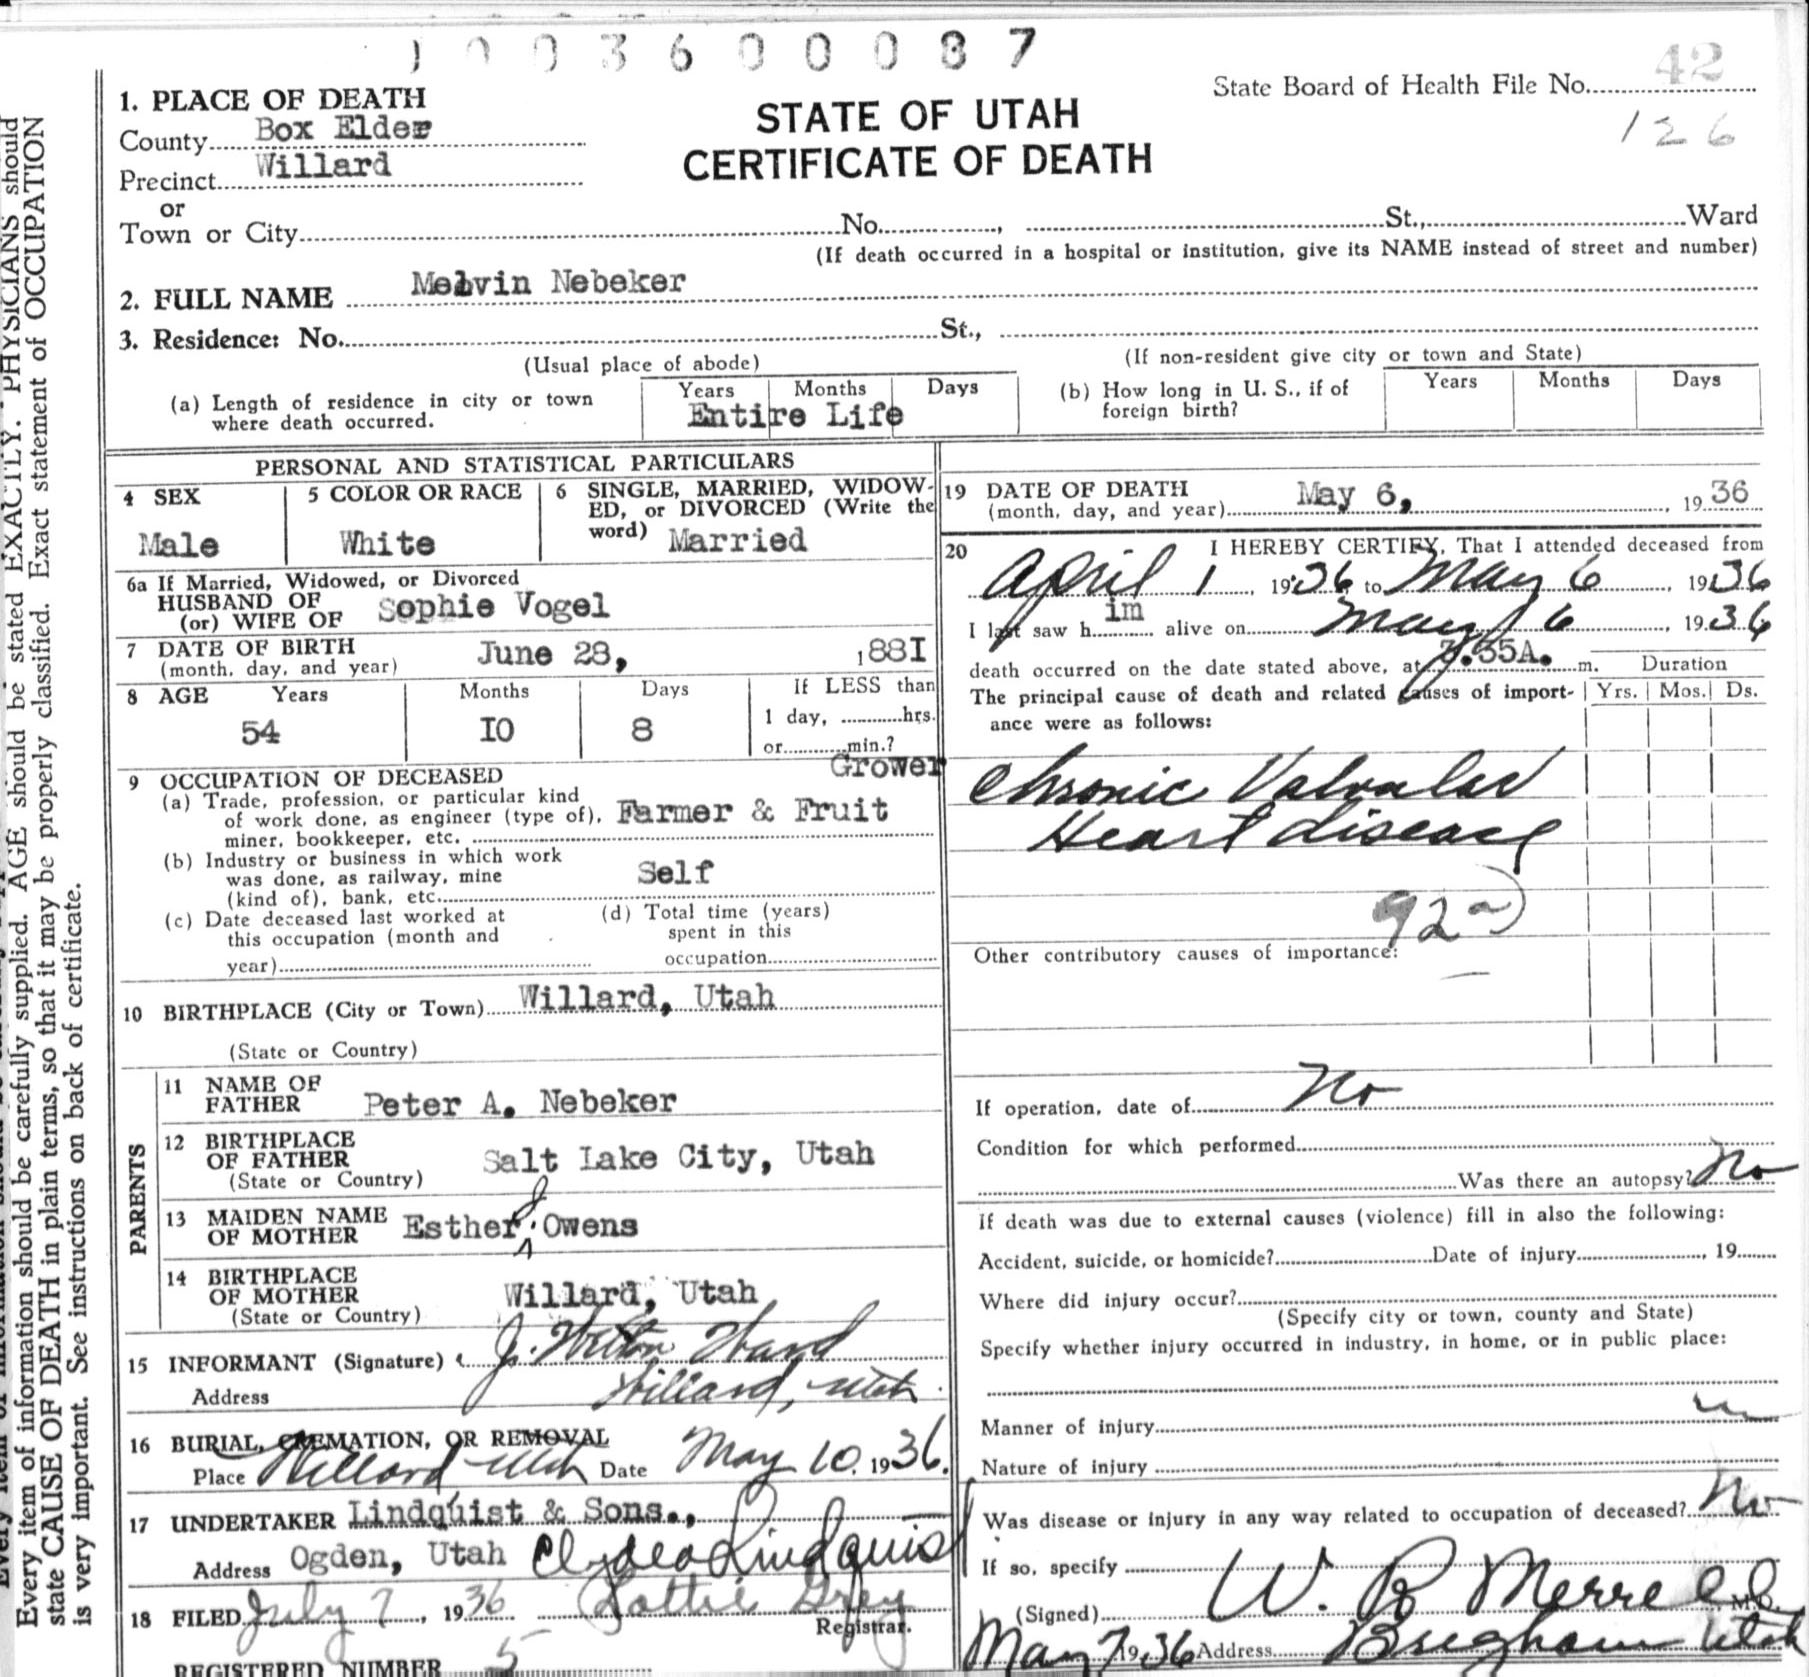 1003600087
42
State Board of Health File No.
126
1. PLACE OF DEATH
STATE OF UTAH
CERTIFICATE OF DEATH
County Box Elder
Precinct Willard
or
Town or City No. , St., Ward
(If death occurred in a hospital or institution, give its NAME instead of street and number)
2. FULL NAME Melvin Nebeker
3. Residence: No. St.,
(Usual place of abode) (If non-resident give city or town and State)
(a) Length of residence in city or town where death occurred. Years Months Days
Entire Life
(b) How long in U. S., if of foreign birth? Years Months Days
PERSONAL AND STATISTICAL PARTICULARS
4 SEX
Male
5 COLOR OR RACE
White
6 SINGLE, MARRIED, WIDOW-
ED, or DIVORCED (Write the
word) Married
6a If Married, Widowed, or Divorced
HUSBAND OF
(or) WIFE OF Sophie Vogel
7 DATE OF BIRTH
(month, day, and year) June 28, 188I
8 AGE Years Months Days If LESS than
54 I0 8 1 day, hrs.
or min.?
9 OCCUPATION OF DECEASED
(a) Trade, profession, or particular kind
of work done, as engineer (type of),
miner, bookkeeper, etc. Farmer & Fruit Grower
(b) Industry or business in which work
was done, as railway, mine
(kind of), bank, etc. Self
(c) Date deceased last worked at
this occupation (month and
year)
(d) Total time (years)
spent in this
occupation
10 BIRTHPLACE (City or Town) Willard, Utah
(State or Country)
PARENTS
11 NAME OF
FATHER Peter A. Nebeker
12 BIRTHPLACE
OF FATHER Salt Lake City, Utah
(State or Country)
13 MAIDEN NAME
OF MOTHER Esther Owens
14 BIRTHPLACE
OF MOTHER Willard, Utah
(State or Country)
15 INFORMANT (Signature) J. Welton Ward
Address Willard, Utah
16 BURIAL, CREMATION, OR REMOVAL
Place Willard Utah Date May 10, 1936.
17 UNDERTAKER Lindquist & Sons.,
Address Ogden, Utah Clyde Lindquist
18 FILED July 7, 1936 Lottie Grey
Registrar.
REGISTERED NUMBER 5
19 DATE OF DEATH
(month, day, and year) May 6, , 1936
20 I HEREBY CERTIFY, That I attended deceased from
April 1, 1936, to May 6, 1936
I last saw him alive on May 6, 1936
death occurred on the date stated above, at 35A. m. Duration
The principal cause of death and related causes of import- Yrs. Mos. Ds.
ance were as follows:
Chronic Valvular
Heart disease
92 a
Other contributory causes of importance:
If operation, date of No
Condition for which performed
Was there an autopsy? No
If death was due to external causes (violence) fill in also the following:
Accident, suicide, or homicide? Date of injury , 19
Where did injury occur?
(Specify city or town, county and State)
Specify whether injury occurred in industry, in home, or in public place:
Manner of injury
Nature of injury
Was disease or injury in any way related to occupation of deceased? No
If so, specify
(Signed) W. R. Merrell M.D.
May 7, 1936 Address Brigham Utah
Every item of information should be carefully supplied. AGE should be stated EXACTLY. PHYSICIANS should
state CAUSE OF DEATH in plain terms, so that it may be properly classified. Exact statement of OCCUPATION
is very important. See instructions on back of certificate.